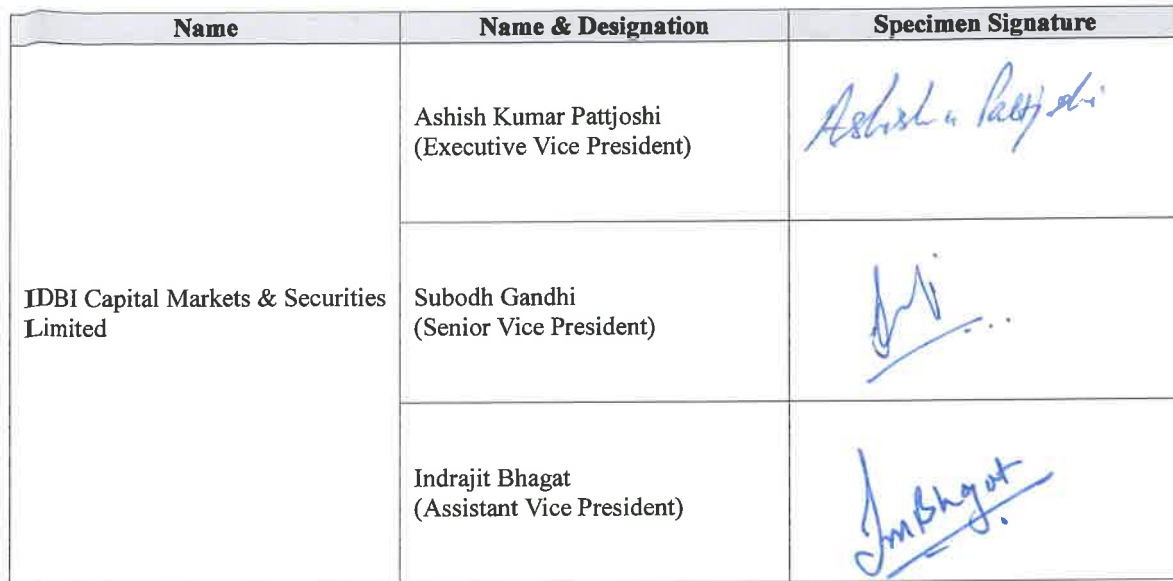 Name
Name & Designation
Specimen Signature
IDBI Capital Markets & Securities
Limited
Ashish Kumar Pattjoshi
(Executive Vice President)
Subodh Gandhi
(Senior Vice President)
Indrajit Bhagat
(Assistant Vice President)